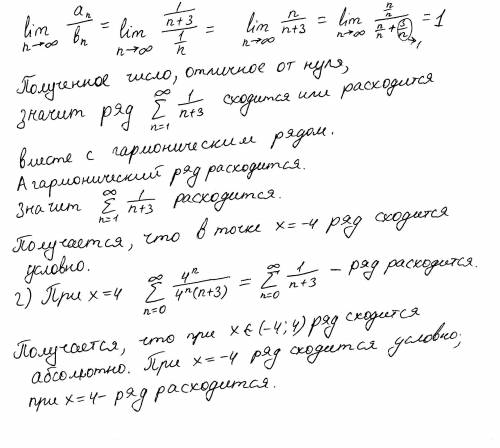 lim n→∞ aₙ/bₙ = lim n→∞ (1/(n+3))/(1/n) = lim n→∞ n/(n+3) = lim n→∞ (n/n)/(n/n + 3/n) = 1
Полученное число, отличное от нуля,
значит ряд ∞ Σ n=1 1/(n+3) сходится или расходится
вместе с гармоническим рядом.
А гармонический ряд расходится.
Значит ∞ Σ n=1 1/(n+3) расходится.
Получается, что в точке x=-4 ряд сходится
условно.
2) При x=4 ∞ Σ n=0 4ⁿ/(4ⁿ(n+3)) = ∞ Σ n=0 1/(n+3) – ряд расходится.
Получается, что при x∈(-4;4) ряд сходится
абсолютно. При x=-4 ряд сходится условно;
при x=4- ряд расходится.